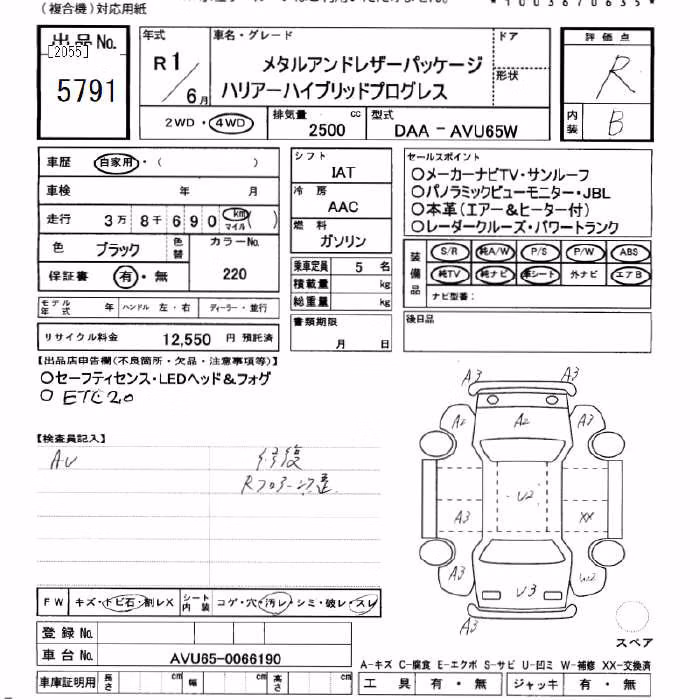 (複合機)対応用紙
*1003670635*
出品No.
[2055]
5791
年式
R1/6月
車名・グレード
メタルアンドレザーパッケージ
ハリアーハイブリッドプログレス
ドア
形状
評価点
R
内装
B
2WD・4WD
排気量 2500 cc
型式 DAA-AVU65W
車歴 自家用・( )
車検 年 月
走行 3万8千690 km マイル ( )
色 ブラック
色替
カラーNo. 220
保証書 有・無
シフト
IAT
冷房
AAC
燃料
ガソリン
乗車定員 5 名
積載量 kg
総重量 kg
書類期限
月 日
セールスポイント
○メーカーナビTV・サンルーフ
○パノラミックビューモニター・JBL
○本革(エアー&ヒーター付)
○レーダークルーズ・パワートランク
装備品
S/R 純A/W P/S P/W ABS
純TV 純ナビ 革シート 外ナビ エアB
ナビ型番:
後日品
モデル年式 年 ハンドル 左・右 ディーラー・並行
リサイクル料金 12,550 円 預託済
【出品店申告欄(不良箇所・欠品・注意事項等)】
○セーフティセンス・LEDヘッド&フォグ
○ ETC2.0
【検査員記入】
AU
修復
A3 A3
A2 A2 A3
U2
A3 XX
A3 W2
U3
A3
スペア
FW キズ・トビ石・割レX シート内装 コゲ・穴・汚レ・シミ・破レ・スレ
登録No.
車台No. AVU65-0066190
車庫証明用 長さ cm 幅 cm 高さ cm
A-キズ C-腐食 E-エクボ S-サビ U-凹ミ W-補修 XX-交換済
工具 有・無 ジャッキ 有・無